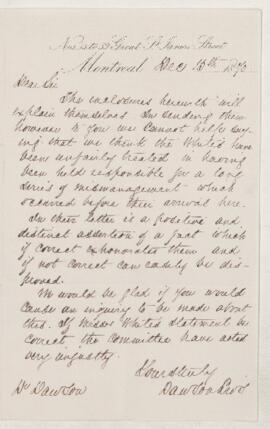 Nos 53 to 59 Great St James Street
Montreal Dec 13th 1873
Dear Sir
The enclosures herewith will
explain themselves. In sending them
however to you we cannot help say
ing that we think the Whites have
been unfairly treated in having
been held responsible for a long
series of mismanagement which
occurred before their arrival here.
In their letter is a positive and
distinct assertion of a fact which
if correct exhonorates them and
if not correct can easily be dis-
proved.
We would be glad if you would
cause an inquiry to be made about
this. If Misses Whites statement be
correct the Committee have acted
very unjustly.
Yours truly
Dr Dawson Dawson Bros